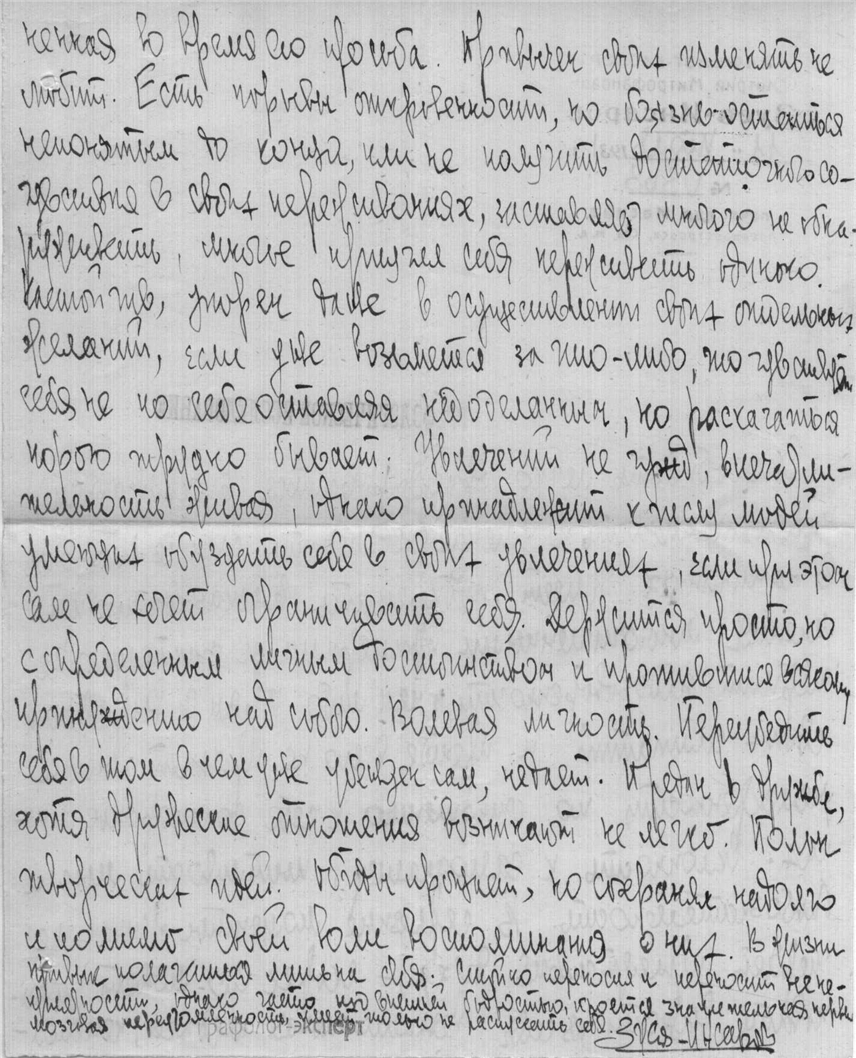 ненная во время его просьба. Привычек своих изменять не
любит. Есть порывы откровенности, но боязнь остаться
непонятым до конца, или не получить достаточного со-
чувствия в своих переживаниях, заставляет многого не обна-
руживать, многое приучил себя переживать одиноко.
Настойчив, упорен даже в осуществлении своих отдельных
желаний, если уже возьмется за что-либо, то чувствует
себя не по себе оставляя недоделанным, но раскачаться
порою трудно бывает. Увлечений не чужд, впечатли-
тельность живая, однако принадлежит к числу людей
умеющих обуздать себя в своих увлечениях, если при этом
сам не хочет ограничивать себя. Держится просто, но
с определенным личным достоинством и противится всякому
принуждению над собою. Волевая личность. Переубедить
себя в том в чем уже убежден сам, не дает. Предан в дружбе,
хотя дружеские отношения возникают не легко. Полон
творческих идей. Обиды прощает, но сохраняя надолго
и помимо своей воли воспоминания о них. В жизни
привык полагаться лишь на себя. Стойко переносил и переносит все не-
приятности, однако часто под внешней бодростью, кроется значительная нерв
мозговая переутомленность, умеет только не распускать себя. Зуев-Инсаров
графолог-эксперт